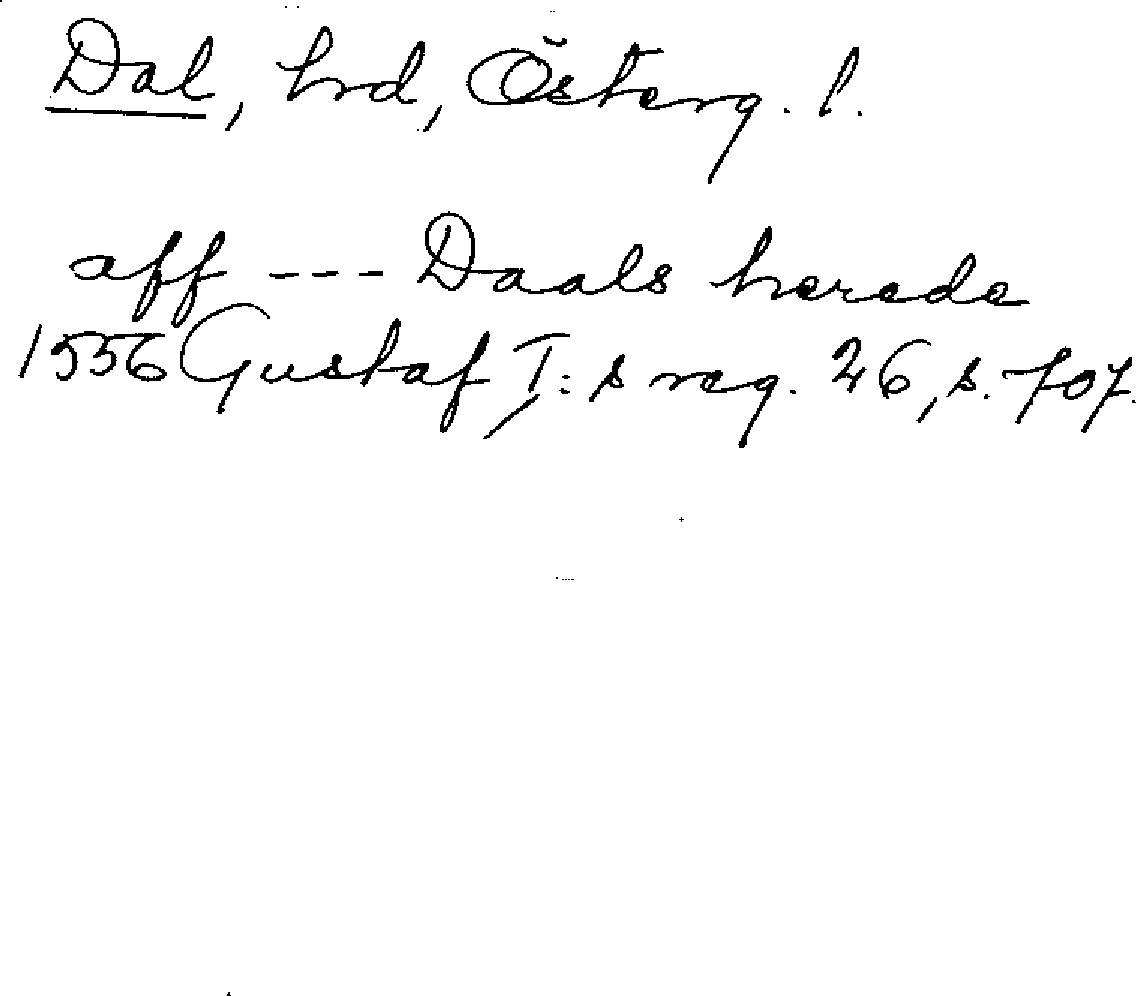 Dal, hrd, Österg. l.
aff --- Daals herede
1556 Gustaf I:s reg. 26, s. 707.